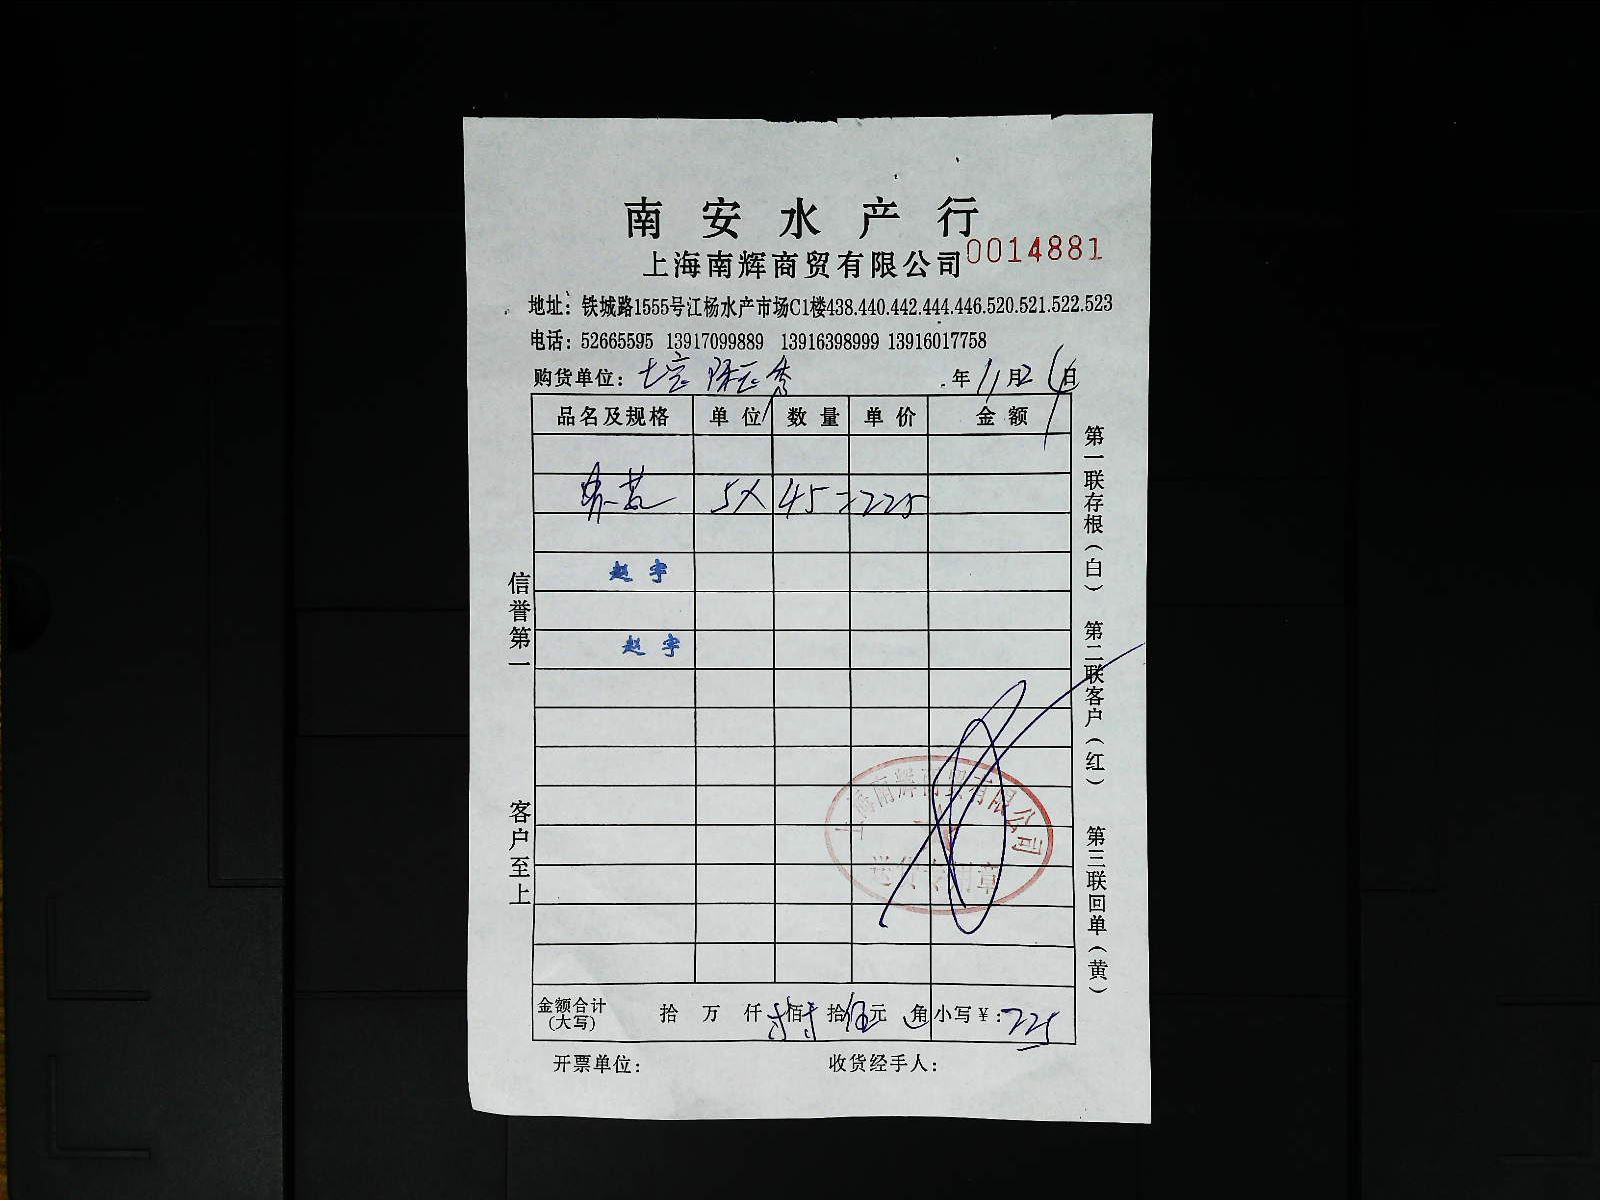 南安水产行
上海南辉商贸有限公司 0014881
地址：铁城路1555号江杨水产市场C1楼438.440.442.444.446.520.521.522.523
电话：52665595 13917099889 13916398999 13916017758
购货单位： 年11月26日
品名及规格 单位 数量 单价 金额
5X 45=225
赵宇
赵宇
信誉第一
客户至上
第一联存根（白）
第二联客户（红）
第三联回单（黄）
上海南辉商贸有限公司
金额合计 拾 万 仟 佰 拾 伍元 角 小写￥：225
(大写)
开票单位： 收货经手人：